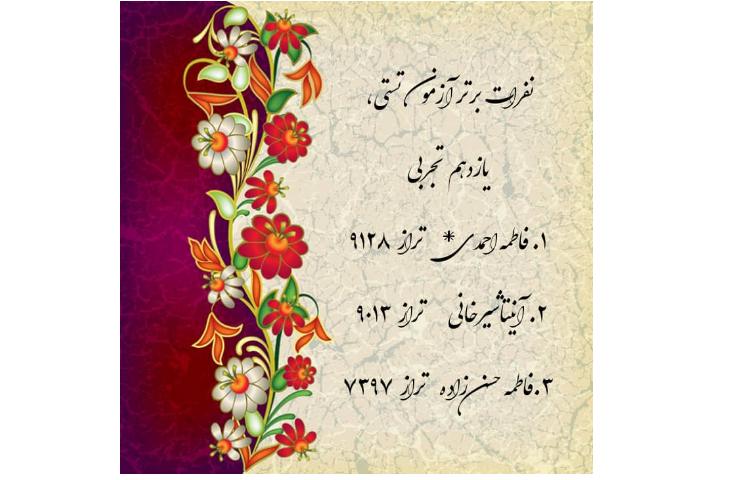 نفرات برتر آزمون تستی،
یازدهم تجربی
۱. فاطمه احمدی* تراز ۹۱۲۸
۲. آنیتا شیرخانی تراز ۹۰۱۳
۳. فاطمه حسن زاده تراز ۷۳۹۷